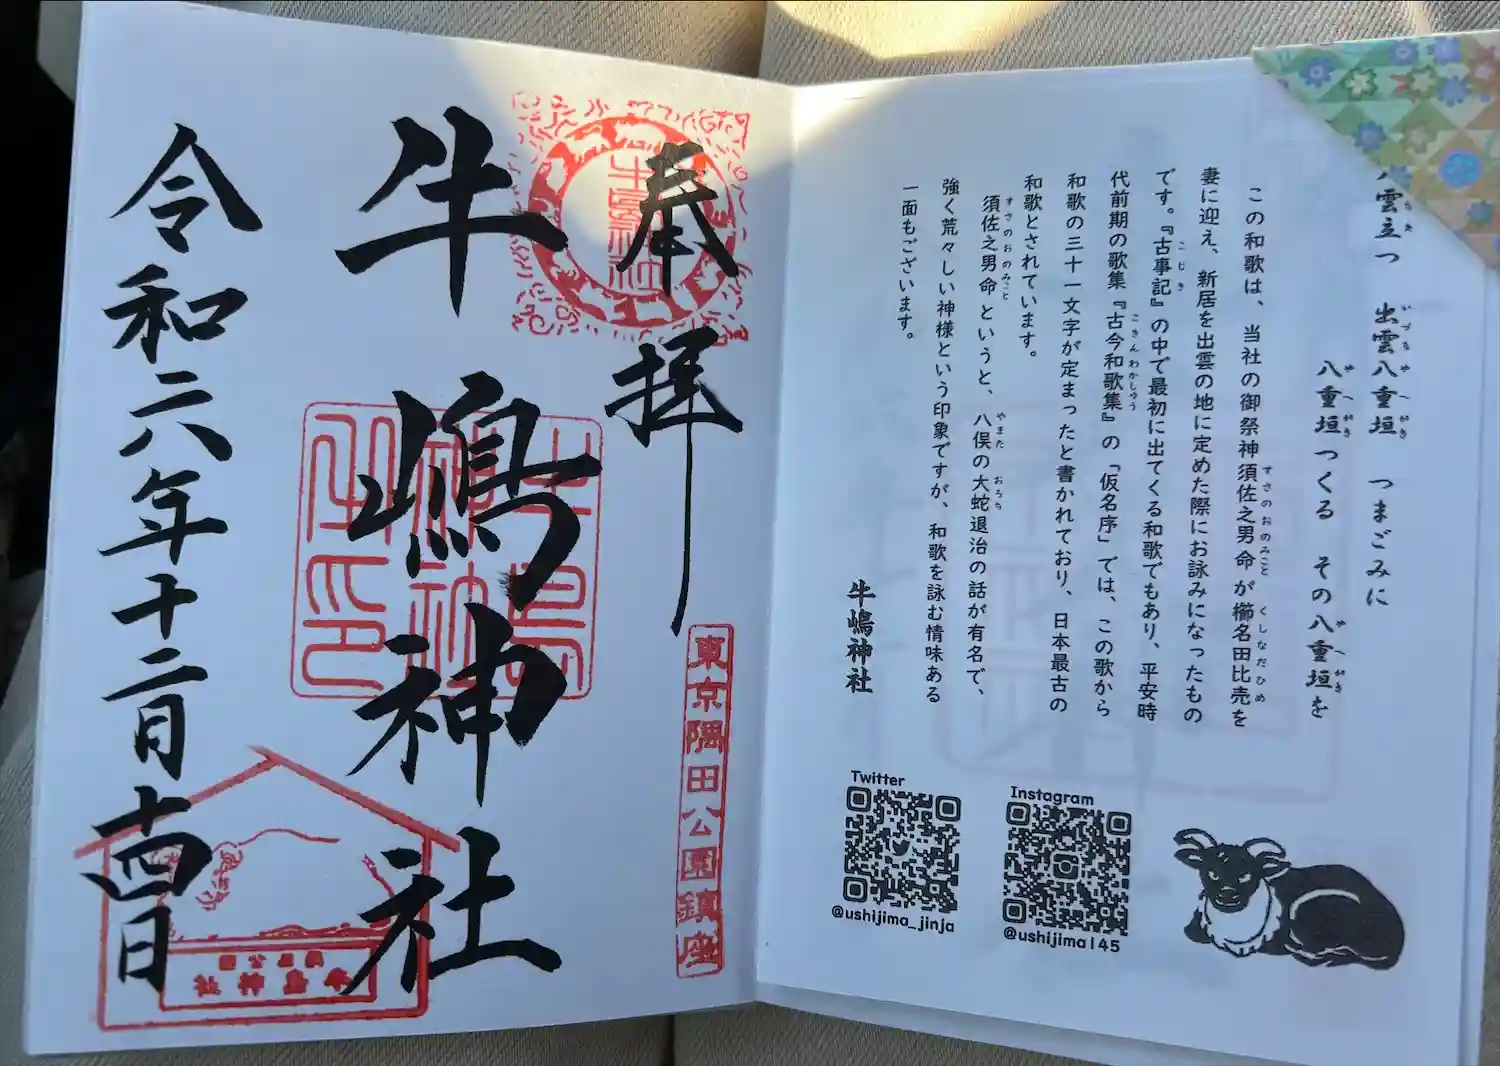 雲立つ　出雲八重垣　つまごみに
八重垣つくる　その八重垣を
この和歌は、当社の御祭神須佐之男命が櫛名田比売を
妻に迎え、新居を出雲の地に定めた際にお詠みになったもの
です。『古事記』の中で最初に出てくる和歌でもあり、平安時
代前期の歌集『古今和歌集』の「仮名序」では、この歌から
和歌の三十一文字が定まったと書かれており、日本最古の
和歌とされています。
須佐之男命というと、八俣の大蛇退治の話が有名で、
強く荒々しい神様という印象ですが、和歌を詠む情味ある
一面もございます。
牛嶋神社
Twitter
@ushijima_jinja
Instagram
@ushijima145
奉拝
東京隅田公園鎮座
牛嶋神社
令和六年十二月十四日